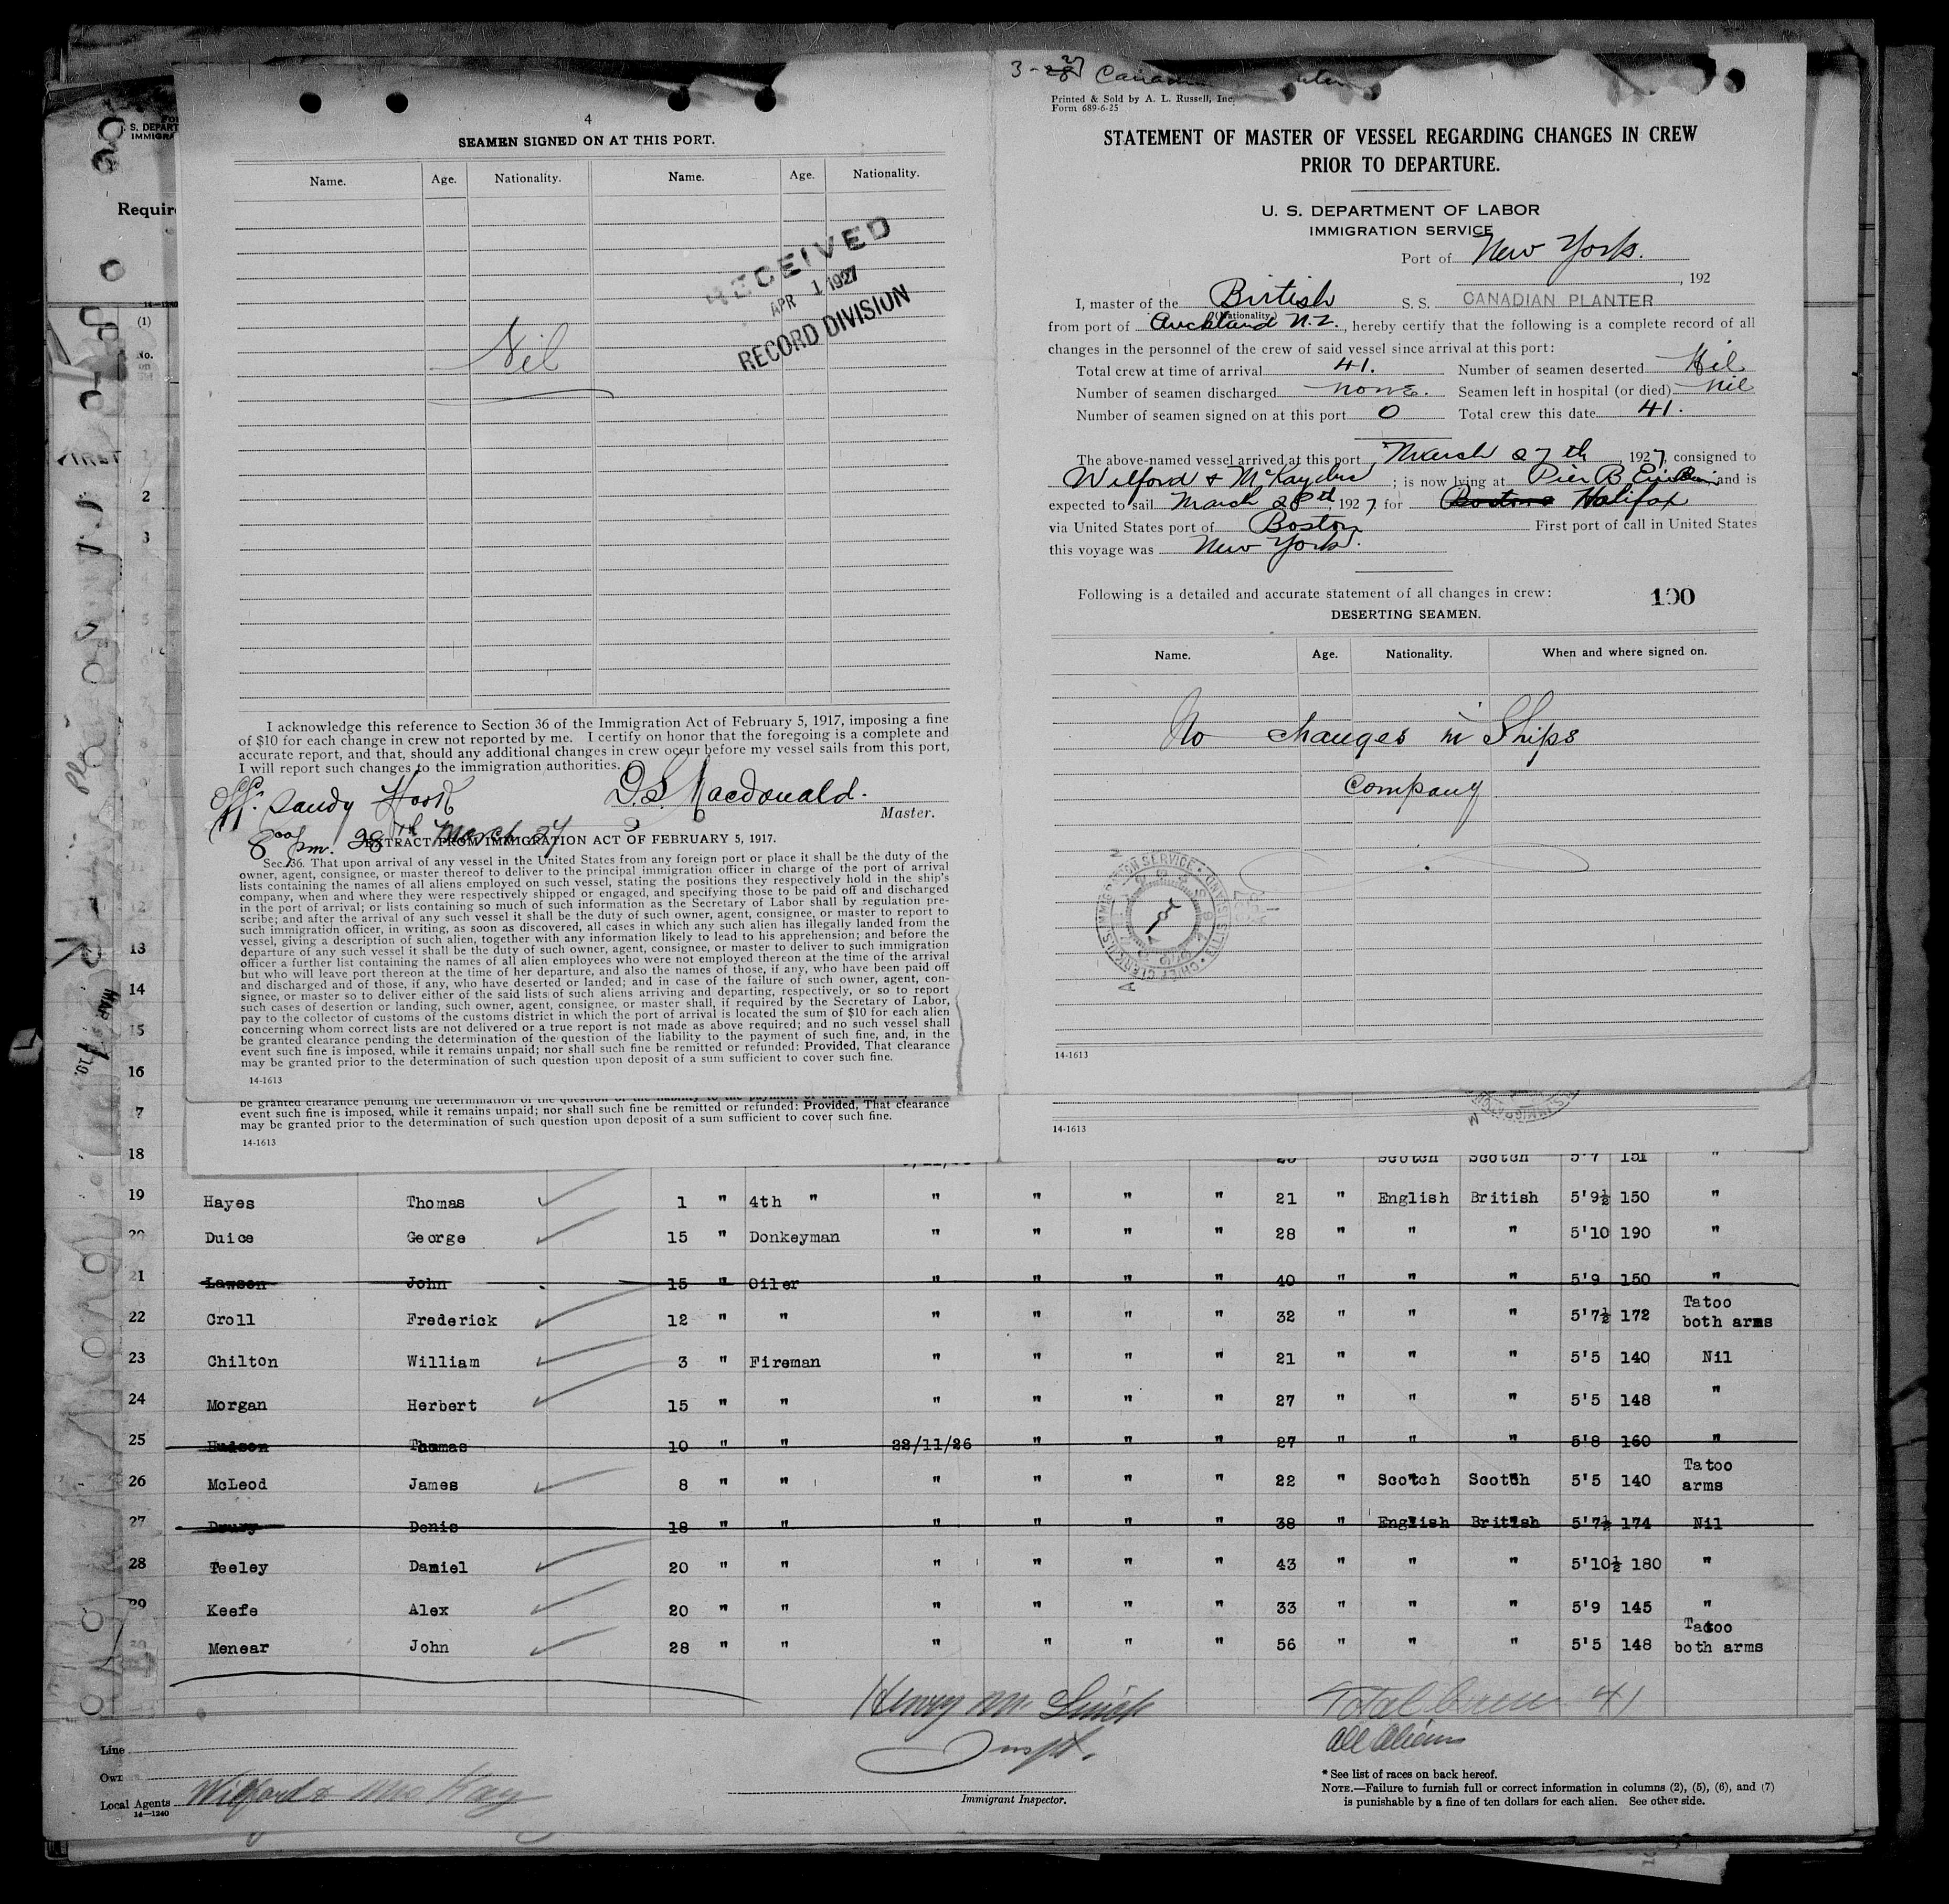 4
SEAMEN SIGNED ON AT THIS PORT.
Name. Age. Nationality. Name. Age. Nationality.
RECEIVED
APR 1 1927
RECORD DIVISION
Nil
I acknowledge this reference to Section 36 of the Immigration Act of February 5, 1917, imposing a fine
of $10 for each change in crew not reported by me. I certify on honor that the foregoing is a complete and
accurate report, and that, should any additional changes in crew occur before my vessel sails from this port,
I will report such changes to the immigration authorities.
Sandy Hook
Macdonald.
Master.
8 00 pm. 28th March 27
EXTRACT FROM IMMIGRATION ACT OF FEBRUARY 5, 1917.
Sec. 36. That upon arrival of any vessel in the United States from any foreign port or place it shall be the duty of the
owner, agent, consignee, or master thereof to deliver to the principal immigration officer in charge of the port of arrival
lists containing the names of all aliens employed on such vessel, stating the positions they respectively hold in the ship's
company, when and where they were respectively shipped or engaged, and specifying those to be paid off and discharged
in the port of arrival; or lists containing so much of such information as the Secretary of Labor shall by regulation pre-
scribe; and after the arrival of any such vessel it shall be the duty of such owner, agent, consignee, or master to report to
such immigration officer, in writing, as soon as discovered, all cases in which any such alien has illegally landed from the
vessel, giving a description of such alien, together with any information likely to lead to his apprehension; and before the
departure of any such vessel it shall be the duty of such owner, agent, consignee, or master to deliver to such immigration
officer a further list containing the names of all alien employees who were not employed thereon at the time of the arrival
but who will leave port thereon at the time of her departure, and also the names of those, if any, who have been paid off
and discharged and of those, if any, who have deserted or landed; and in case of the failure of such owner, agent, con-
signee, or master so to deliver either of the said lists of such aliens arriving and departing, respectively, or so to report
such cases of desertion or landing, such owner, agent, consignee, or master shall, if required by the Secretary of Labor,
pay to the collector of customs of the customs district in which the port of arrival is located the sum of $10 for each alien
concerning whom correct lists are not delivered or a true report is not made as above required; and no such vessel shall
be granted clearance pending the determination of the question of the liability to the payment of such fine, and, in the
event such fine is imposed, while it remains unpaid; nor shall such fine be remitted or refunded: Provided, That clearance
may be granted prior to the determination of such question upon deposit of a sum sufficient to cover such fine.
14-1613
be granted clearance pending the determination of the question of the liability to the payment of such fine, and, in the
event such fine is imposed, while it remains unpaid; nor shall such fine be remitted or refunded: Provided, That clearance
may be granted prior to the determination of such question upon deposit of a sum sufficient to cover such fine.
14-1613
Printed & Sold by A. L. Russell, Inc.
Form 689-6-25
STATEMENT OF MASTER OF VESSEL REGARDING CHANGES IN CREW
PRIOR TO DEPARTURE.
U. S. DEPARTMENT OF LABOR
IMMIGRATION SERVICE
Port of New York.
, 192
I, master of the British S. S. CANADIAN PLANTER
(Nationality)
from port of Auckland N.Z., hereby certify that the following is a complete record of all
changes in the personnel of the crew of said vessel since arrival at this port:
Total crew at time of arrival 41. Number of seamen deserted Nil
Number of seamen discharged none. Seamen left in hospital (or died) nil
Number of seamen signed on at this port 0 Total crew this date 41.
The above-named vessel arrived at this port March 27th, 1927, consigned to
Wilford & McKay; is now lying at Pier B and is
expected to sail March 28, 1927, for Boston Halifax
via United States port of Boston First port of call in United States
this voyage was New York.
Following is a detailed and accurate statement of all changes in crew: 100
DESERTING SEAMEN.
Name. Age. Nationality. When and where signed on.
No changes in Ships
Company
14-1613
14-1613
Requir
(1)
No.
on
2
3
13
14
15
16
7
18 Scotch Scotch 5'7 151 "
19 Hayes Thomas 1 " 4th " " " " " 21 " English British 5'9½ 150 "
20 Duice George 15 " Donkeyman " " " " 28 " " " 5'10 190 "
21 Lawson John 15 " Oiler " " " " 40 " " " 5'9 150 "
22 Croll Frederick 12 " " " " " " 32 " " " 5'7½ 172 Tatoo both arms
23 Chilton William 3 " Fireman " " " " 21 " " " 5'5 140 Nil
24 Morgan Herbert 15 " " " " " " 27 " " " 5'5 148 "
25 Hudson Thomas 10 " " 22/11/26 " " " 27 " " " 5'8 160 "
26 McLeod James 8 " " " " " " 22 " Scotch Scotch 5'5 140 Tatoo arms
27 Drury Denis 18 " " " " " " 38 " English British 5'7½ 174 Nil
28 Teeley Daniel 20 " " " " " " 43 " " " 5'10½ 180 "
29 Keefe Alex 20 " " " " " " 33 " " " 5'9 145 "
30 Menear John 28 " " " " " " 56 " " " 5'5 148 Tatoo both arms
Total Crew 41
All Aliens
Line
Own
Local Agents Wilford & Mac Kay
14-1240
Immigrant Inspector.
* See list of races on back hereof.
NOTE.—Failure to furnish full or correct information in columns (2), (5), (6), and (7)
is punishable by a fine of ten dollars for each alien. See other side.